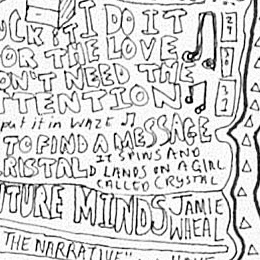 I DO IT
OR THE LOVE
ON'T NEED THE
TTENTION
put it in WAZE
TO FIND A MESSAGE
IT SPINS AND
RISTAL D LANDS ON A GIRL
CALLED CRYSTAL
UTURE MINDS JAMIE
WHEAL
THE NARRATIVE"